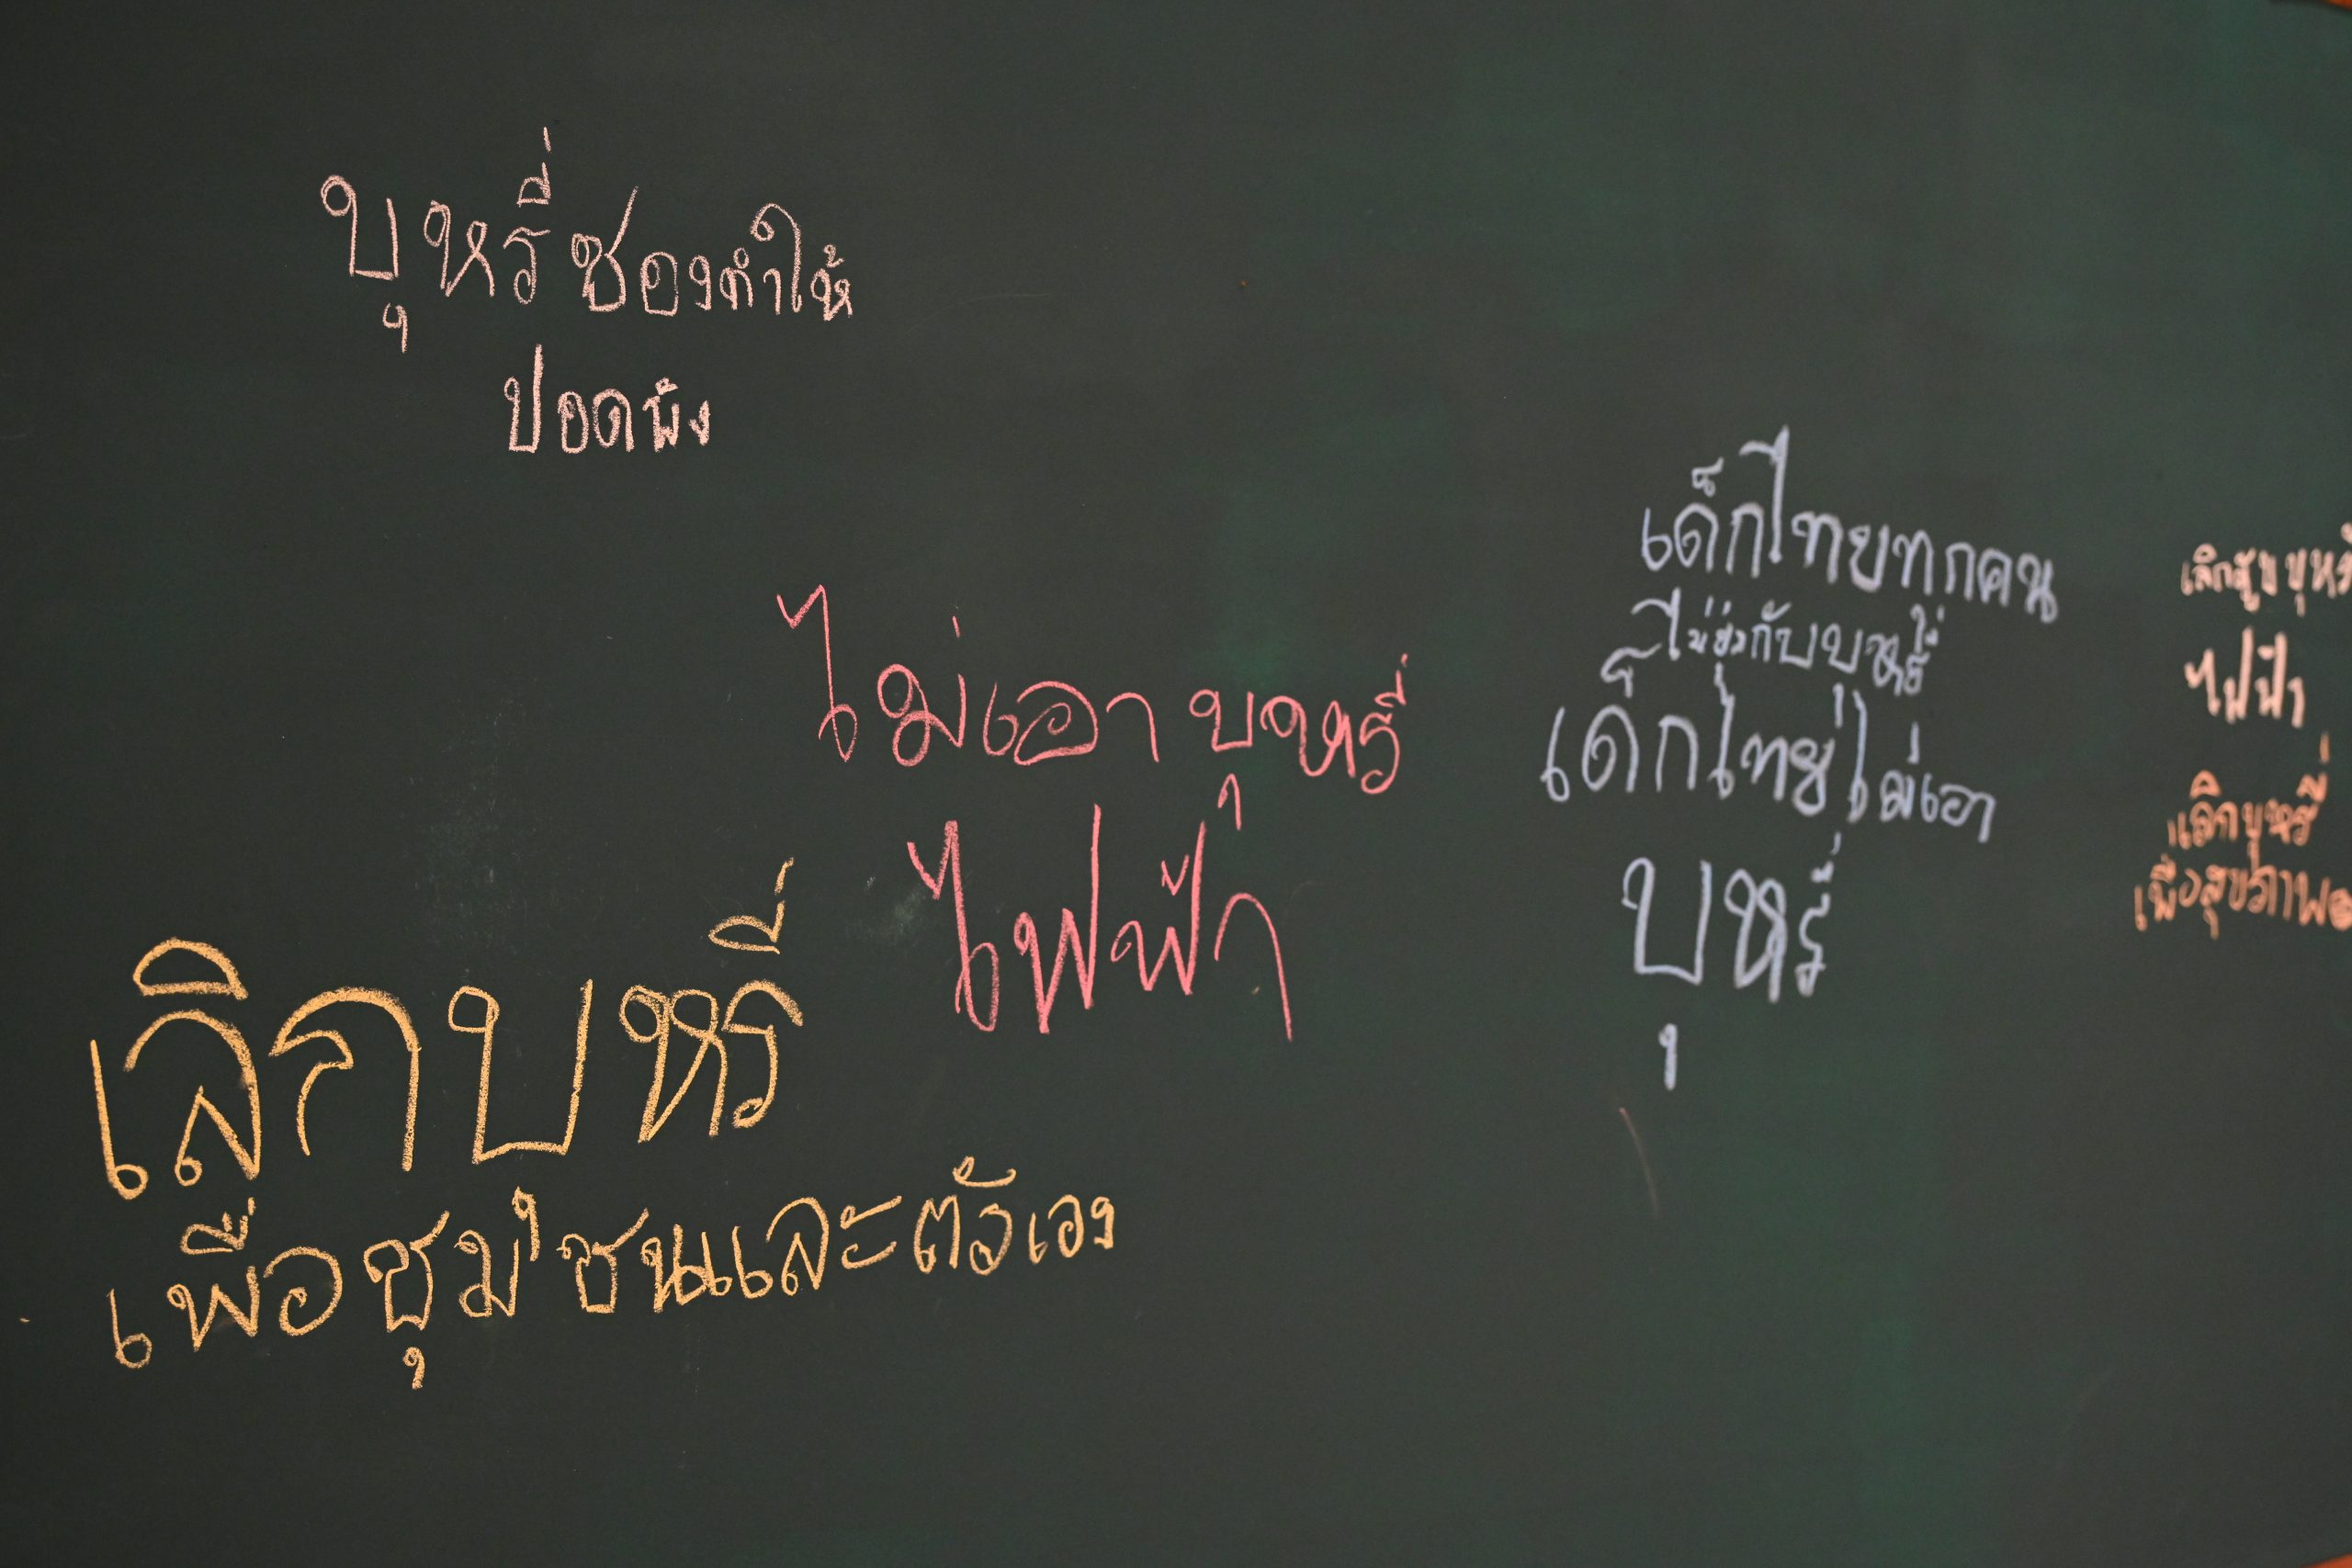 บุหรี่ซองทำให้
ปอดพัง
ไม่เอาบุหรี่
ไฟฟ้า
เลิกบหรี่
เพื่อชุมชนและตัวเอง
เด็กไทยทุกคน
ไม่ยุ่งกับบุหรี่
เด็กไทยไม่เอา
บุหรี่
เลิกสูบ
ไฟฟ้า
เลิกบุหรี่
เพื่อสุขภาพ